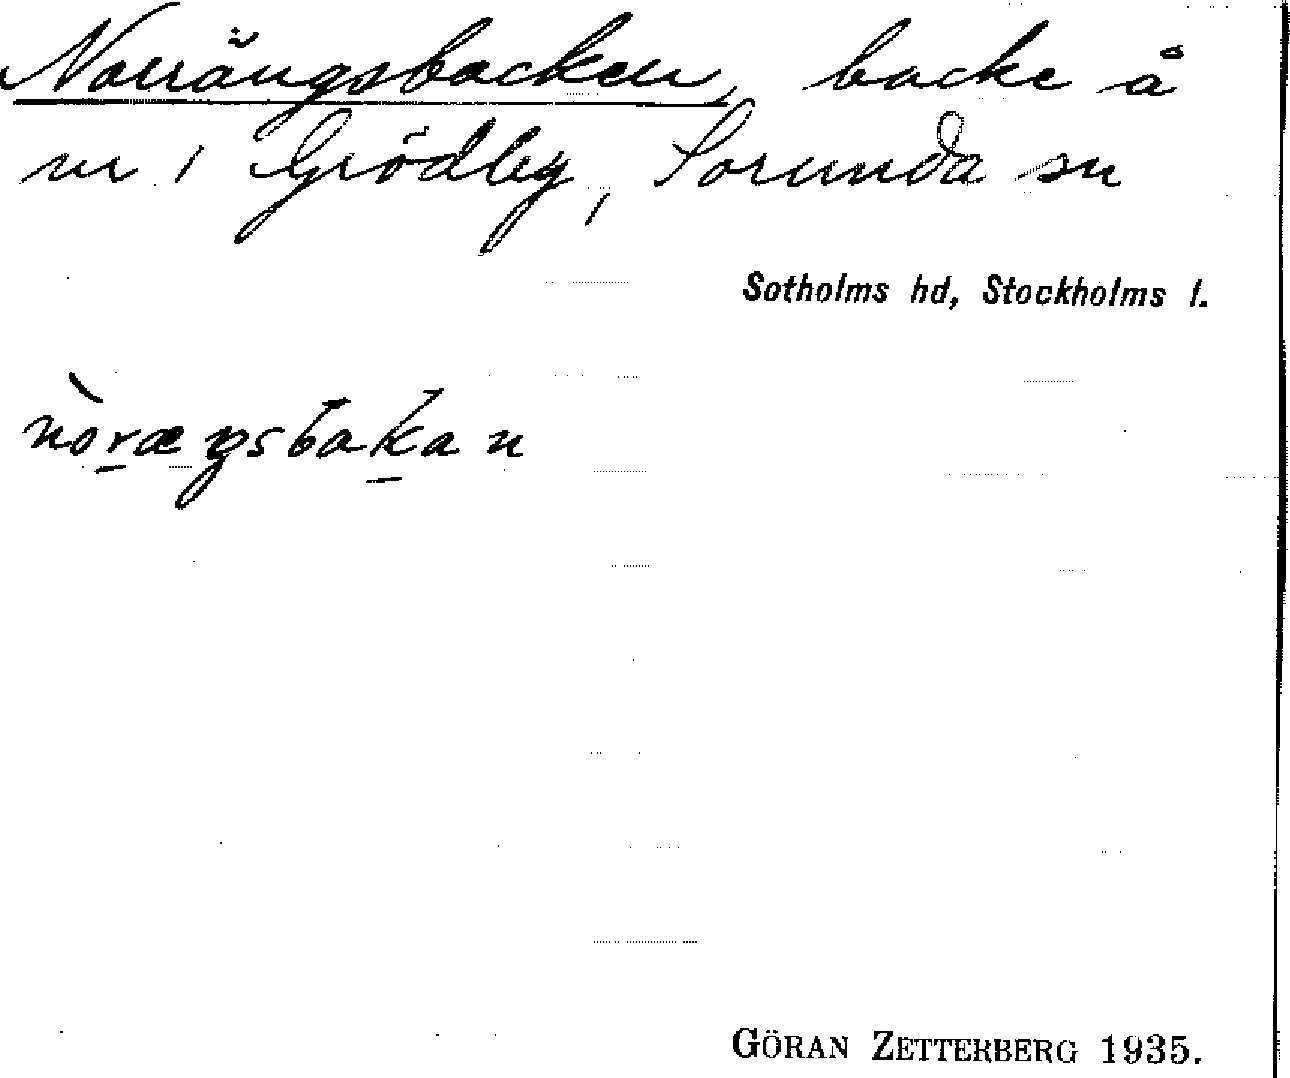 Norrängsbacken, backe å
nr 1 Grödby, Sorunda sn
Sotholms hd, Stockholms l.
nòræŋsbakan
GÖRAN ZETTERBERG 1935.